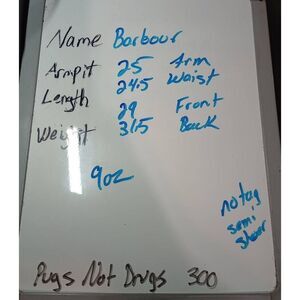 Name Barbour
Armpit 25 Arm
Length 24.5 Waist
29 Front
Weight 31.5 Back
9oz
no tag
semi
sheer
Pugs Not Drugs 300